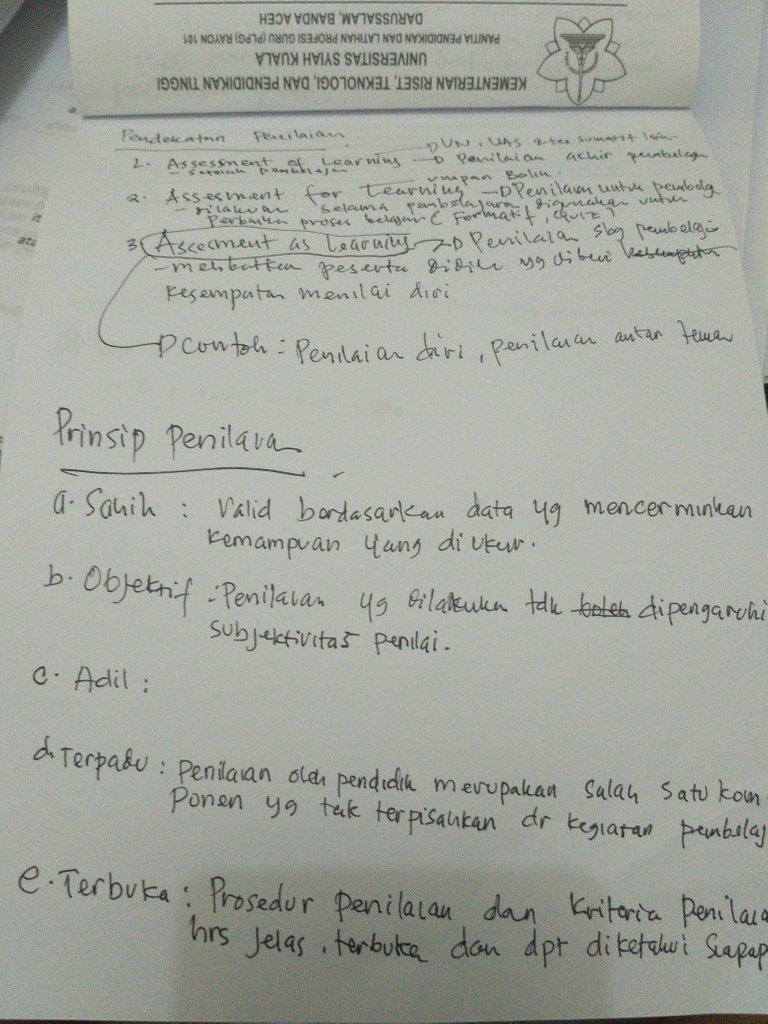 KEMENTERIAN RISET, TEKNOLOGI, DAN PENDIDIKAN TINGGI
UNIVERSITAS SYIAH KUALA
PANITIA PENDIDIKAN DAN LATIHAN PROFESI GURU (PLPG) RAYON 101
DARUSSALAM, BANDA ACEH
Pendekatan Penilaian
UN, UAS & tes sumatif lain
1. Assessment of Learning → Penilaian akhir pembelaja
- setelah pembelajar
umpan balik.
2. Assesment for Learning → Penilaian untuk pembelaj
- dilakukan selama pembelajaran, digunakan untuk
Perbaikan proses belajar (Formatif, Quiz)
3. Asscesment as Learning → Penilaian sbg pembelaja
- melibatkan peserta didik yg diberi
kesempatan menilai diri
contoh : Penilaian diri, penilaian antar teman
Prinsip Penilaian
a. Sahih : Valid bardasarkan data yg mencerminkan
kemampuan yang diukur.
b. Objektif : Penilaian yg dilakukan tdk boleh dipengaruhi
subjektivitas penilai.
c. Adil :
d. Terpadu : penilaian oleh pendidik merupakan salah satu kom-
ponen yg tak terpisahkan dr kegiatan pembelaj
e. Terbuka : Prosedur penilaian dan kriteria penilaia
hrs jelas, terbuka dan dpt diketahui siapap